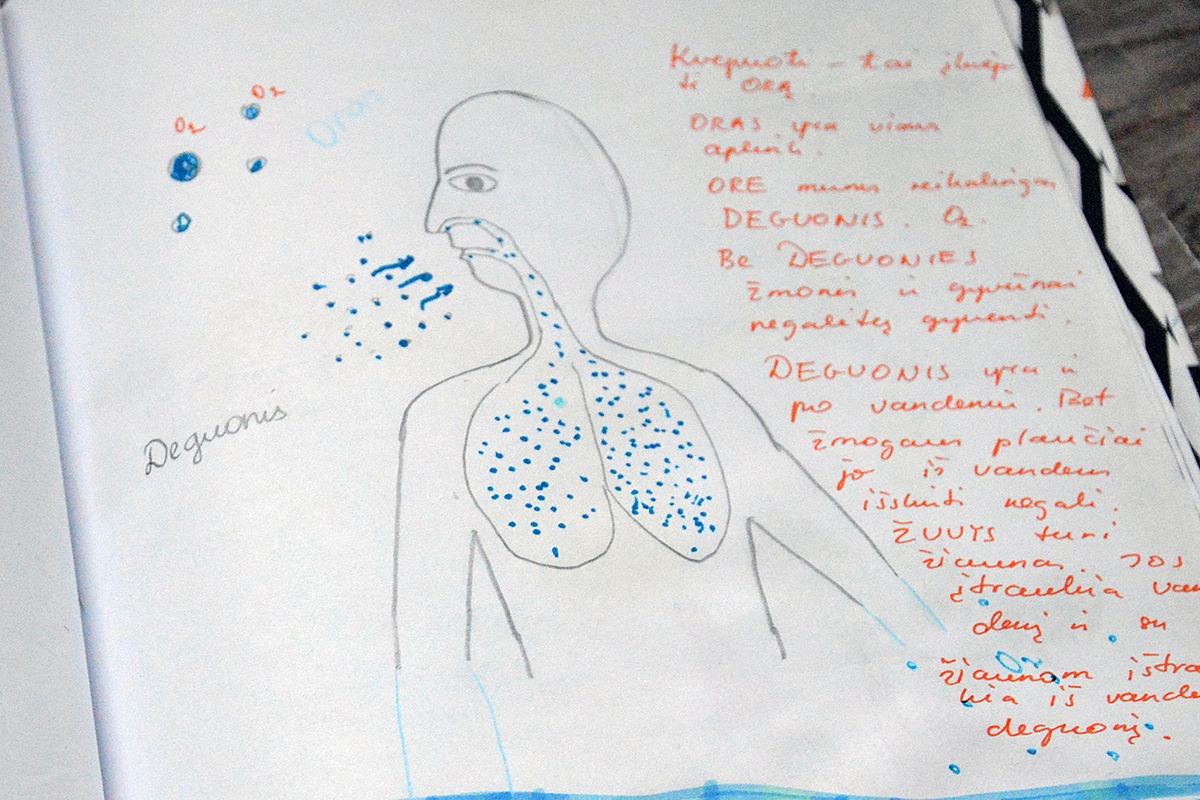 O₂
O₂
Oras
Deguonis
Kvėpuoti – tai įkvėp
ti ORĄ.
ORAS yra visur
aplink.
ORE mums reikalingas
DEGUONIS. O₂.
Be DEGUONIES
žmonės ir gyvūnai
negalėtų gyventi.
DEGUONIS yra ir
po vandeniu. Bet
žmogaus plaučiai
jo iš vandens
išskirti negali.
ŽUVYS turi
žiaunas. JOS
įtraukia van
denį ir su
O₂
žiaunom ištrau
kia iš vande
deguonį.